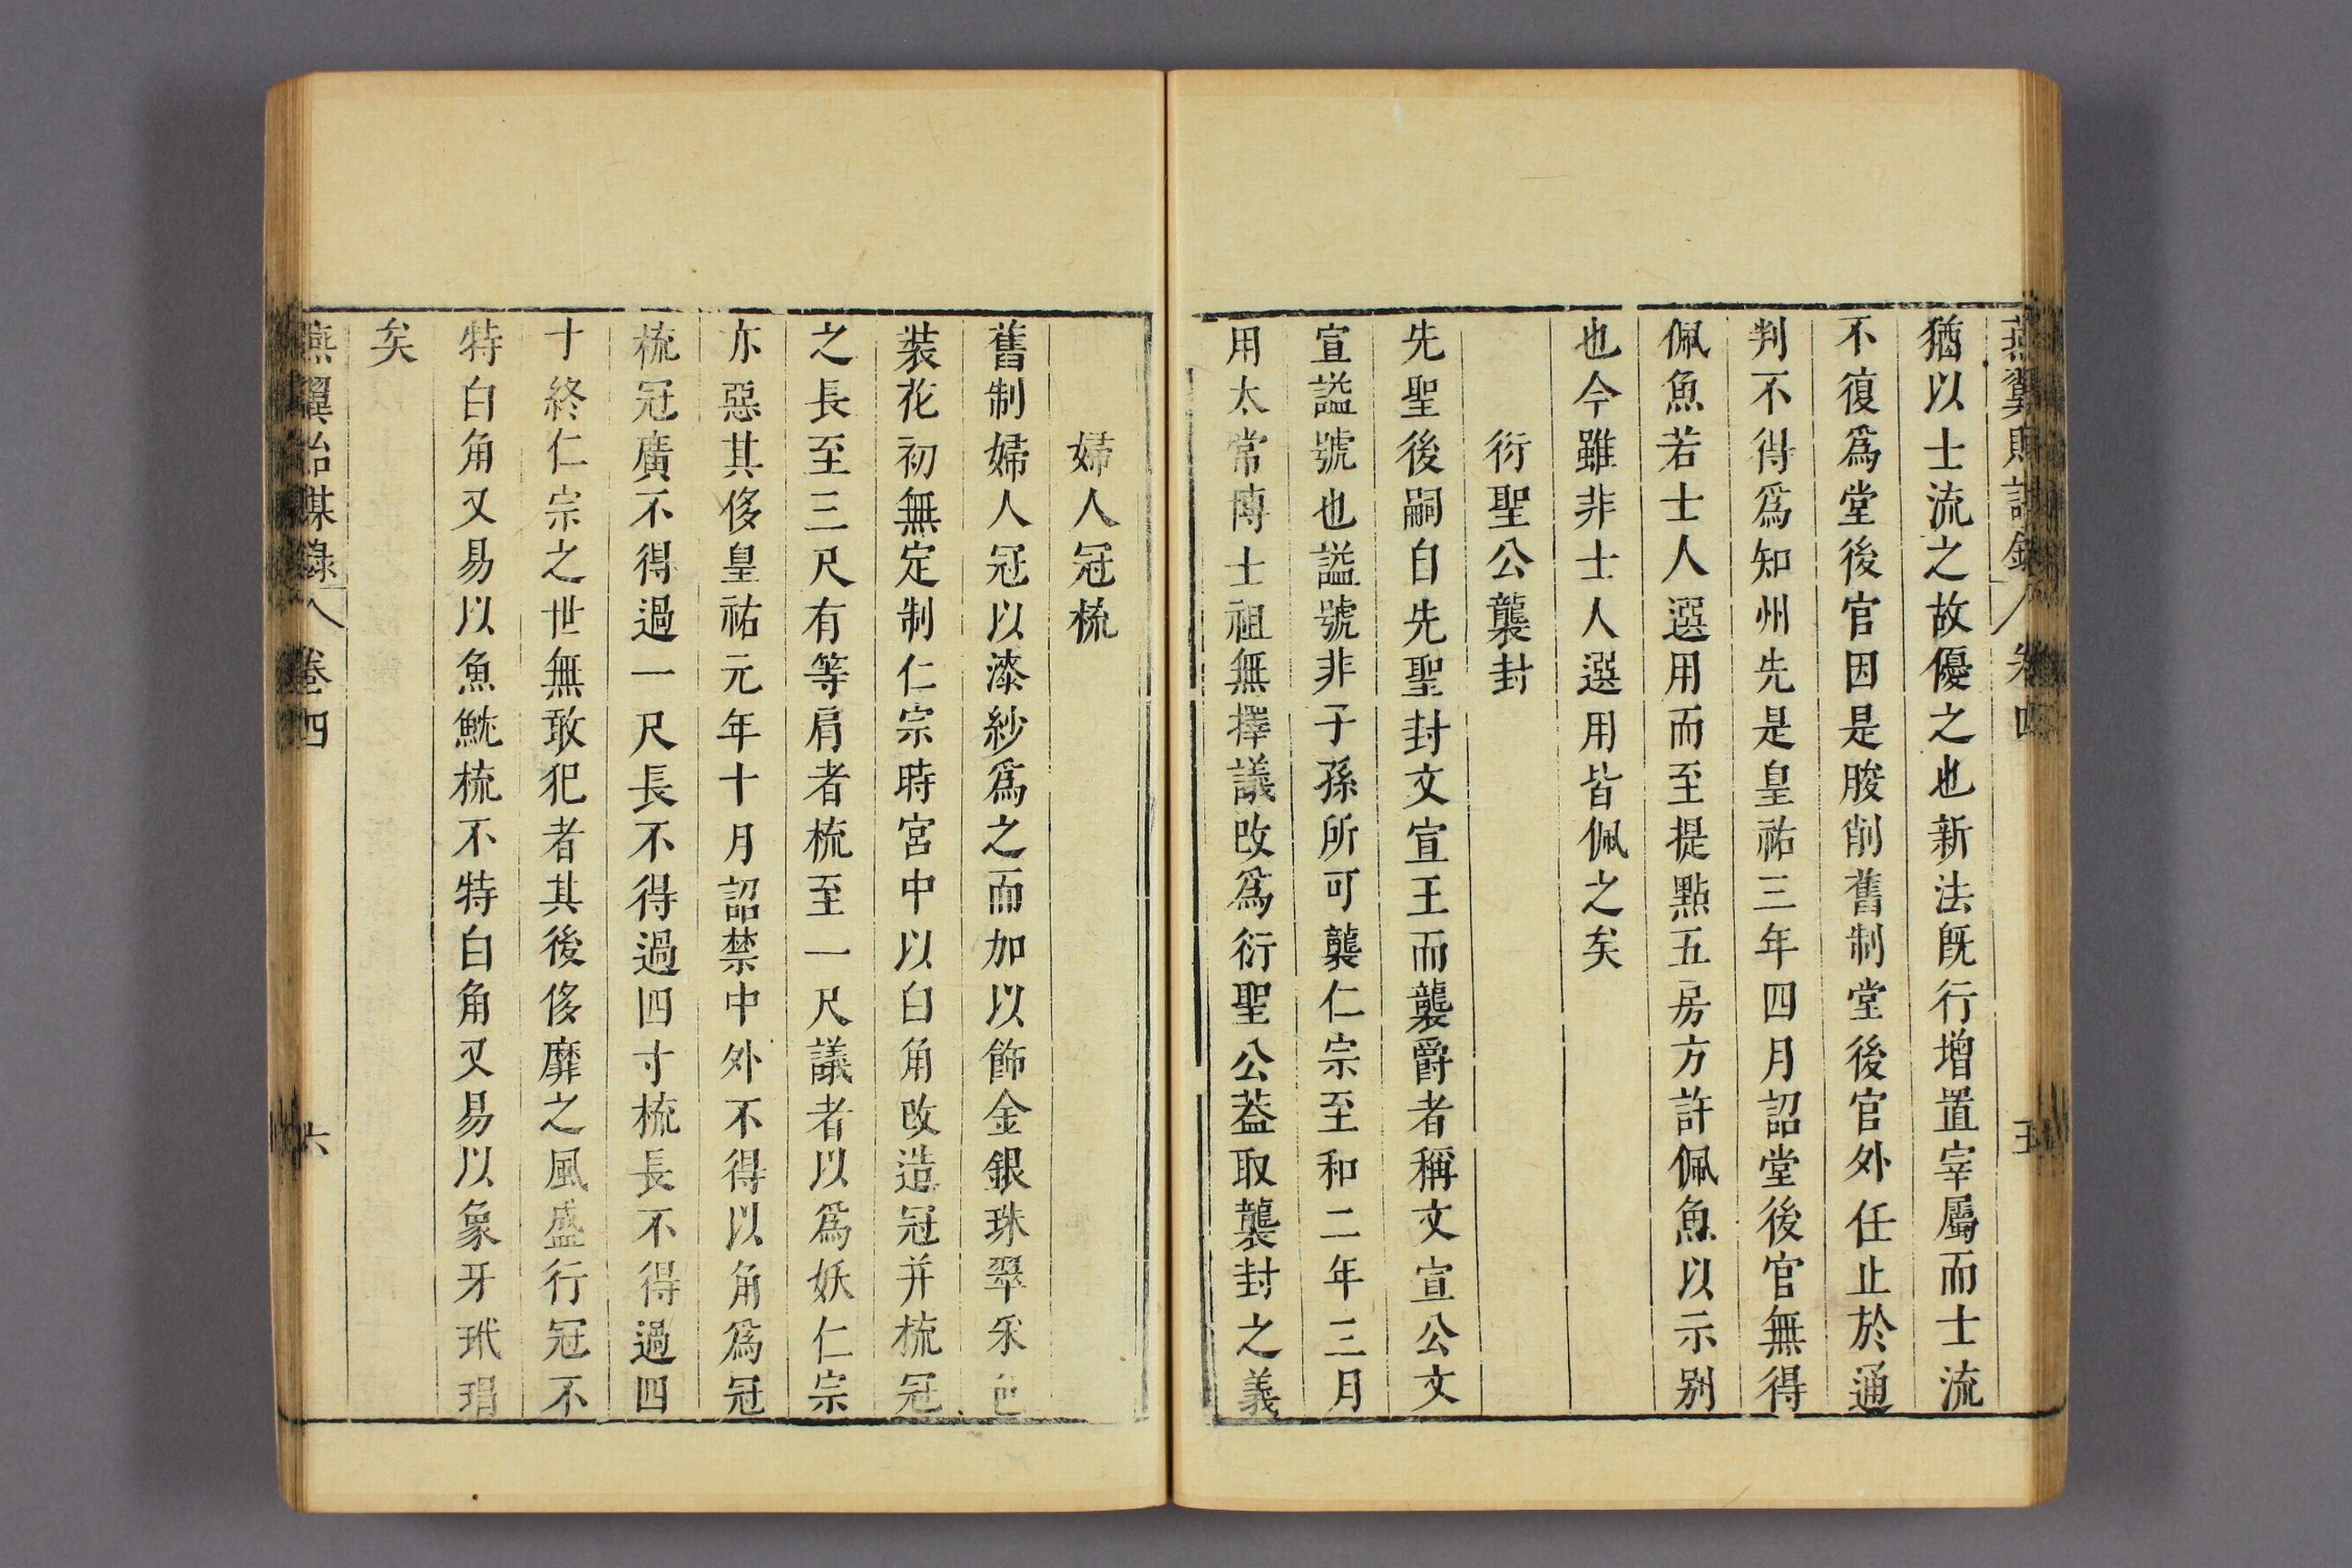 燕翼貽謀錄 卷四 五
猶以士流之故優之也新法既行增置宰屬而士流
不復爲堂後官因是朘削舊制堂後官外任止於通
判不得爲知州先是皇祐三年四月詔堂後官無得
佩魚若士人選用而至提點五房方許佩魚以示别
也今雖非士人選用皆佩之矣
衍聖公襲封
先聖後嗣自先聖封文宣王而襲爵者稱文宣公文
宣謚號也謚號非子孫所可襲仁宗至和二年三月
用太常博士祖無擇議改爲衍聖公葢取襲封之義
婦人冠梳
舊制婦人冠以漆紗爲之而加以飾金銀珠翠采色
裝花初無定制仁宗時宮中以白角改造冠并梳冠
之長至三尺有等肩者梳至一尺議者以爲妖仁宗
亦惡其侈皇祐元年十月詔禁中外不得以角爲冠
梳冠廣不得過一尺長不得過四寸梳長不得過四
寸終仁宗之世無敢犯者其後侈靡之風盛行冠不
特白角又易以魚魫梳不特白角又易以象牙玳瑁
矣
燕翼貽謀錄 卷四 六